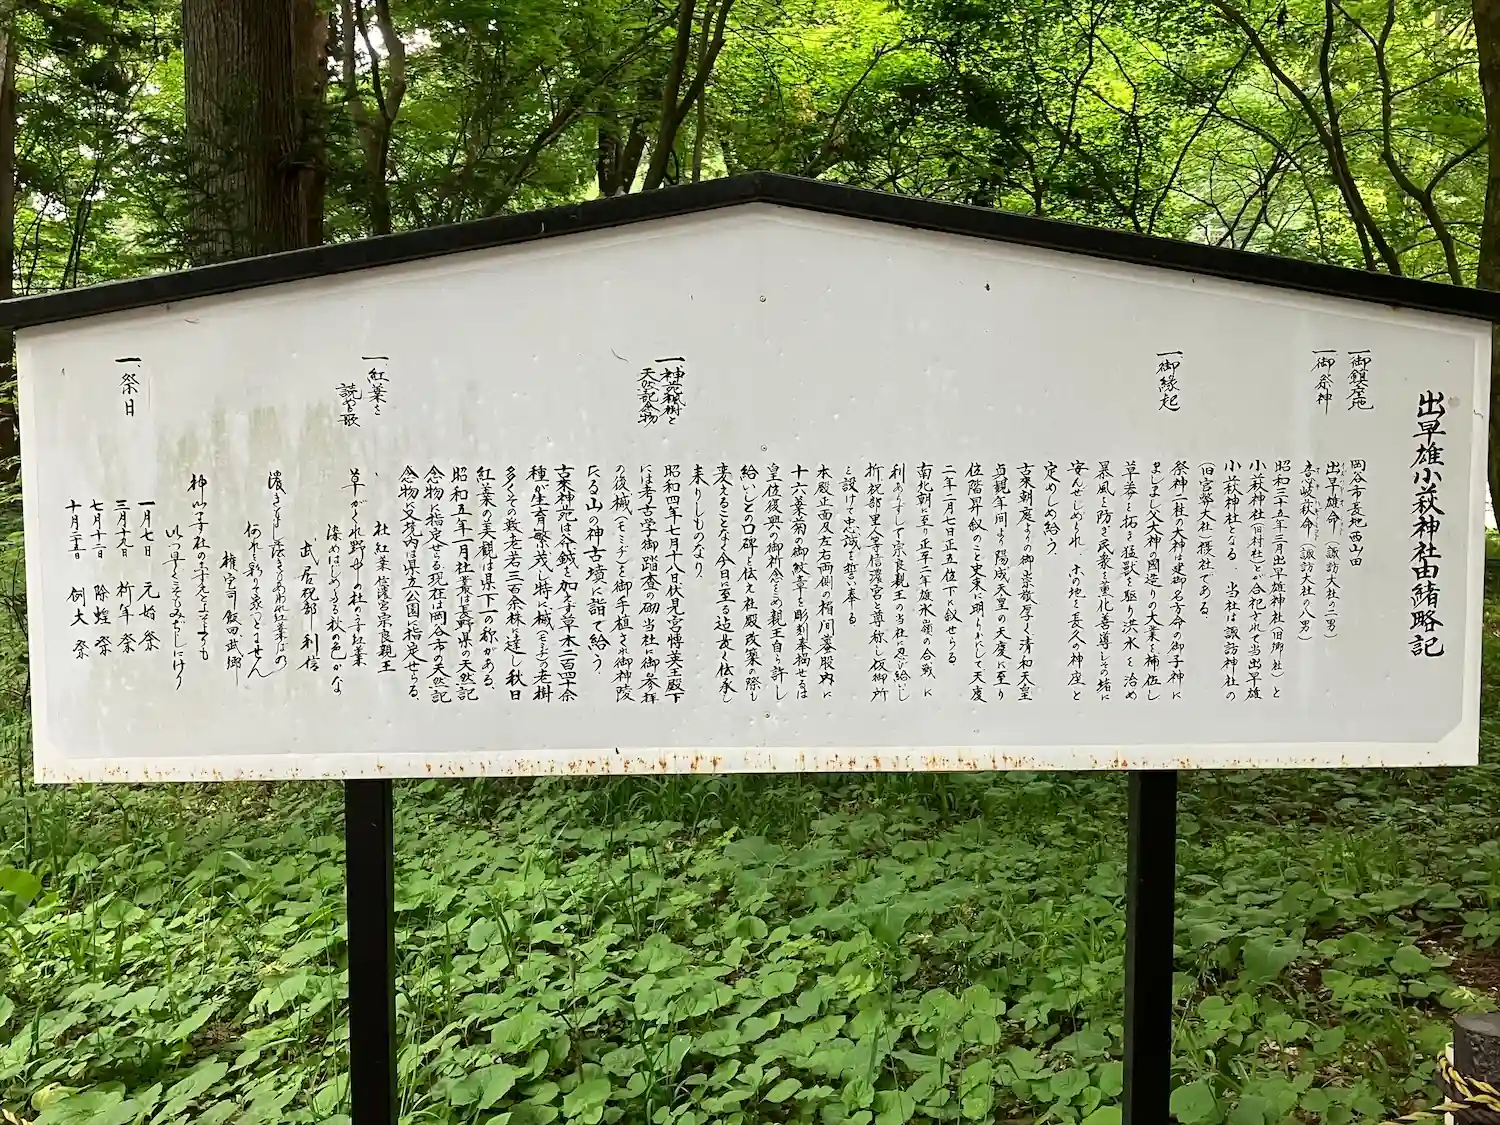 出早雄小萩神社由緒略記
一御鎮座地
岡谷市長地西山田
一御祭神
出早雄命(諏訪大社の二男)
意岐萩命(諏訪大社の八男)
昭和三十五年三月出早雄神社(旧郷社)と
小萩神社(旧村社)とが合祀されて当出早雄
小萩神社となる 当社は諏訪神社の
(旧官幣大社)摂社である
一御縁起
祭神二柱の大神は建御名方命の御子神に
ましまし父大神の国造りの大業を補佐し
草莽を拓き猛獣を駆り洪水を治め
暴風を防ぎ民衆を薫化善導しその緒に
安んぜしめられ この地を長久の神座と
定めしめ給う
古来朝廷よりの御崇敬厚く清和天皇
貞観年間より陽成天皇の天慶に至り
位階昇叙のこと史末に明らかにして天慶
二年二月七日正五位下に叙せらる
南北朝に至り正平十二年雄氷嶺の合戦に
利あらずして宗良親王の当社に忍び給いし
祈祝部里人等信濃宮と尊称し仮御所
を設けて忠誠を誓い奉る
本殿正面及左右両側の楣間蟇股内に
十六葉菊の御紋章を彫刻奉掲せるは
皇位復興の御祈念をこめ親王自ら許し
給いしとの口碑を伝え社殿改築の際も
変えることなく今日に至る迄長く伝承し
来りしものなり
一神苑楓樹と
天然記念物
昭和四年七月十八日伏見宮博英王殿下
には考古学御踏査の砌当社に御参拝
の後楓(モミヂ)を御手植され御神陵
たる山の神古墳に詣で給う
古来神苑は斧鉞を加えず草木二百四十余
種が生育繁茂し特に楓(モミヂ)の老樹
多くその数老若三百余株に達し秋日
紅葉の美観は県下一の称がある
昭和五年一月社叢は長野県の天然記
念物に指定せる現在は岡谷市の天然記
念物に又苑内は県立公園に指定せらる
一紅葉を
読める歌
社紅葉 信濃宮宗良親王
草がくれ野やしの社の子は紅葉
染めはじめける秋の色かな
武居祝部利信
濃きもよし淡きもあわれ紅葉ばの
何れ彩りを求めとません
権宮司 飯田武郷
一祭日
一月七日 元始祭
三月十九日 祈年祭
七月十二日 除蝗祭
十月二十五日 例大祭